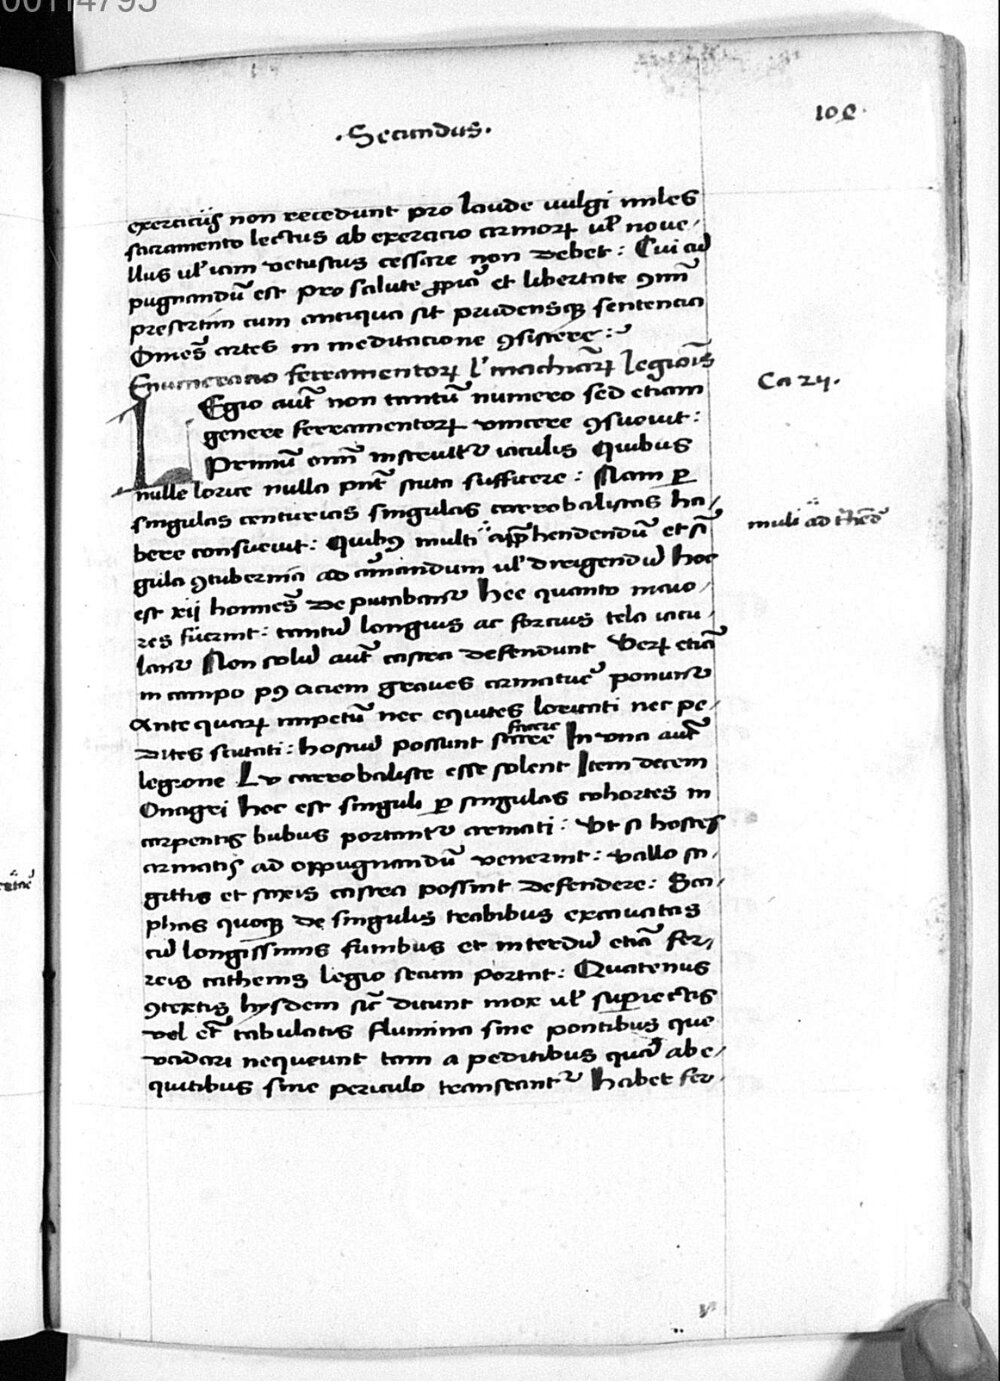 00114795
·Secundus·
102·
exerciciis non recedunt pro laude uulgi miles
sacramento lectus ab exercicio armorꝝ ul̄ noue/
llus ul̄ iam vetustus cessare non debet: Cui cū
pugnandū est pro salute ꝓpiā et libertate ꝯmūi
presertim cum antiqua sit prudensqꝫ sentencia
Omēs artes in meditacione ꝯsistere:
Enumeracio ferramentorꝝ l' machīarꝝ legiois
Ca 25.
LEgio aut̄ non tantū numero sed etiam
genere ferramentorꝝ vincere ꝯsueuit:
Primū om̄i instruitr̄ iaculis Quibus
nulle lorice nulla pn̄t scuta sufficere: Nam ꝑ
singulas centurias singulas carrobalistas ha/
bere consueuit: Quibꝯ multi apꝑhendendū et sī
muli ad
gula ꝯtubernia ad armandum ul̄ dirigendū hoc
est xij homines deputabantr̄ Hec quanto maio/
res fuerint: tantū longius ac forcius tela iacu/
lantr̄ Non solū aut̄ castra defendunt Verꝝ etiā
in campo pꝯ aciem graues armature ponuntr̄
Ante quarꝝ impetū nec equites loricati nec pe/
dites scutati: hostiū possunt stare In vna aut̄
facere
legione Lv carrobaliste esse solent Item decem
Onagri hoc est singuli ꝑ singulas cohortes in
carpentis bubus portantr̄ armati: Vt si hostes
armatis ad oppugnandū venerint: vallo sa/
gittis et saxis castra possint defendere: Sca/
phas quoqꝫ de singulis trabibus excauatas
cū longissimis funibus et interdū etiā fer/
reis cathenis legio secum portat: Quatenus
ꝯtextis hysdem sic̄ dicunt mox ul̄ superiectis
vel et̄ tabulatis flumina sine pontibus que
vadari nequeunt tam a peditibus quā abe/
quitibus sine periculo transeantr̄ Habet fer/